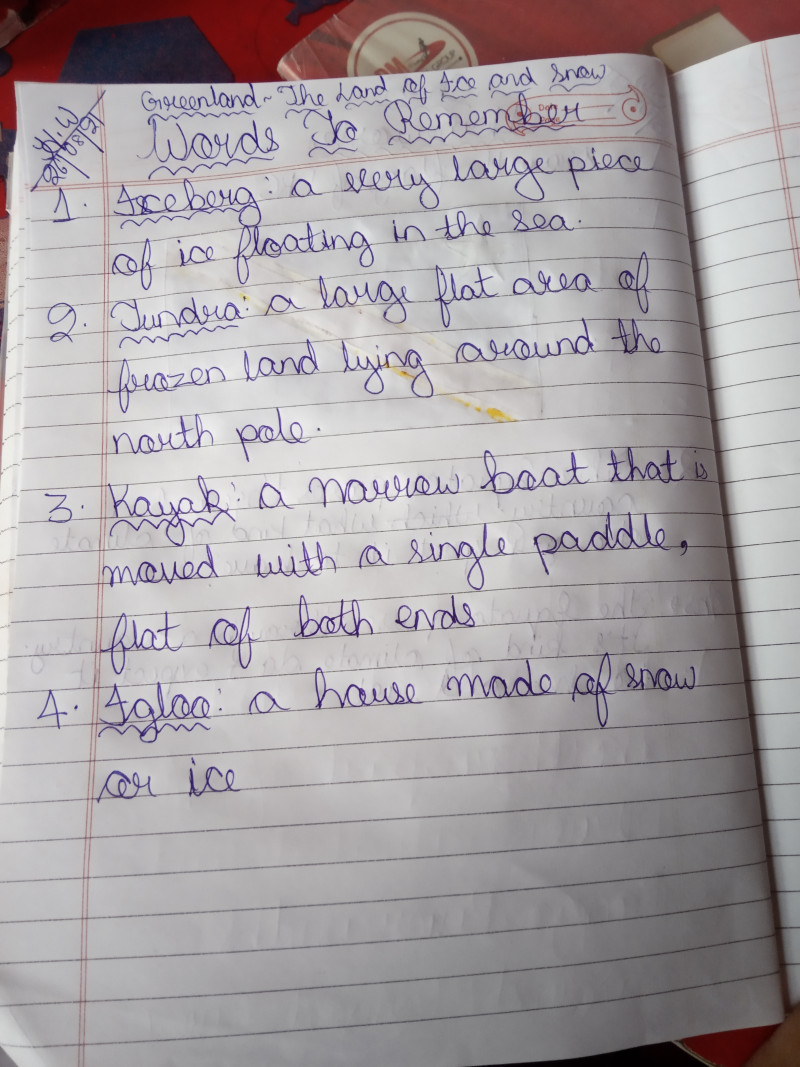 Greenland - The Land of Ice and Snow
H.W
26/08/21
Words To Remember
1. Iceberg: a very large piece
of ice floating in the sea.
2. Tundra: a large flat area of
frozen land lying around the
north pole.
3. Kayak: a narrow boat that is
moved with a single paddle,
flat of both ends
4. Igloo: a house made of snow
or ice